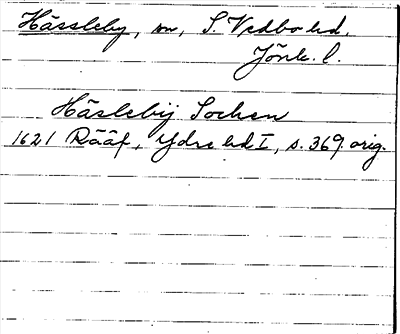 Hässleby, sn, S. Vedbo hd.
Jönk. l.
Häslebij Sochen
1621 Rääf, Ydre hd I, s. 369. orig.